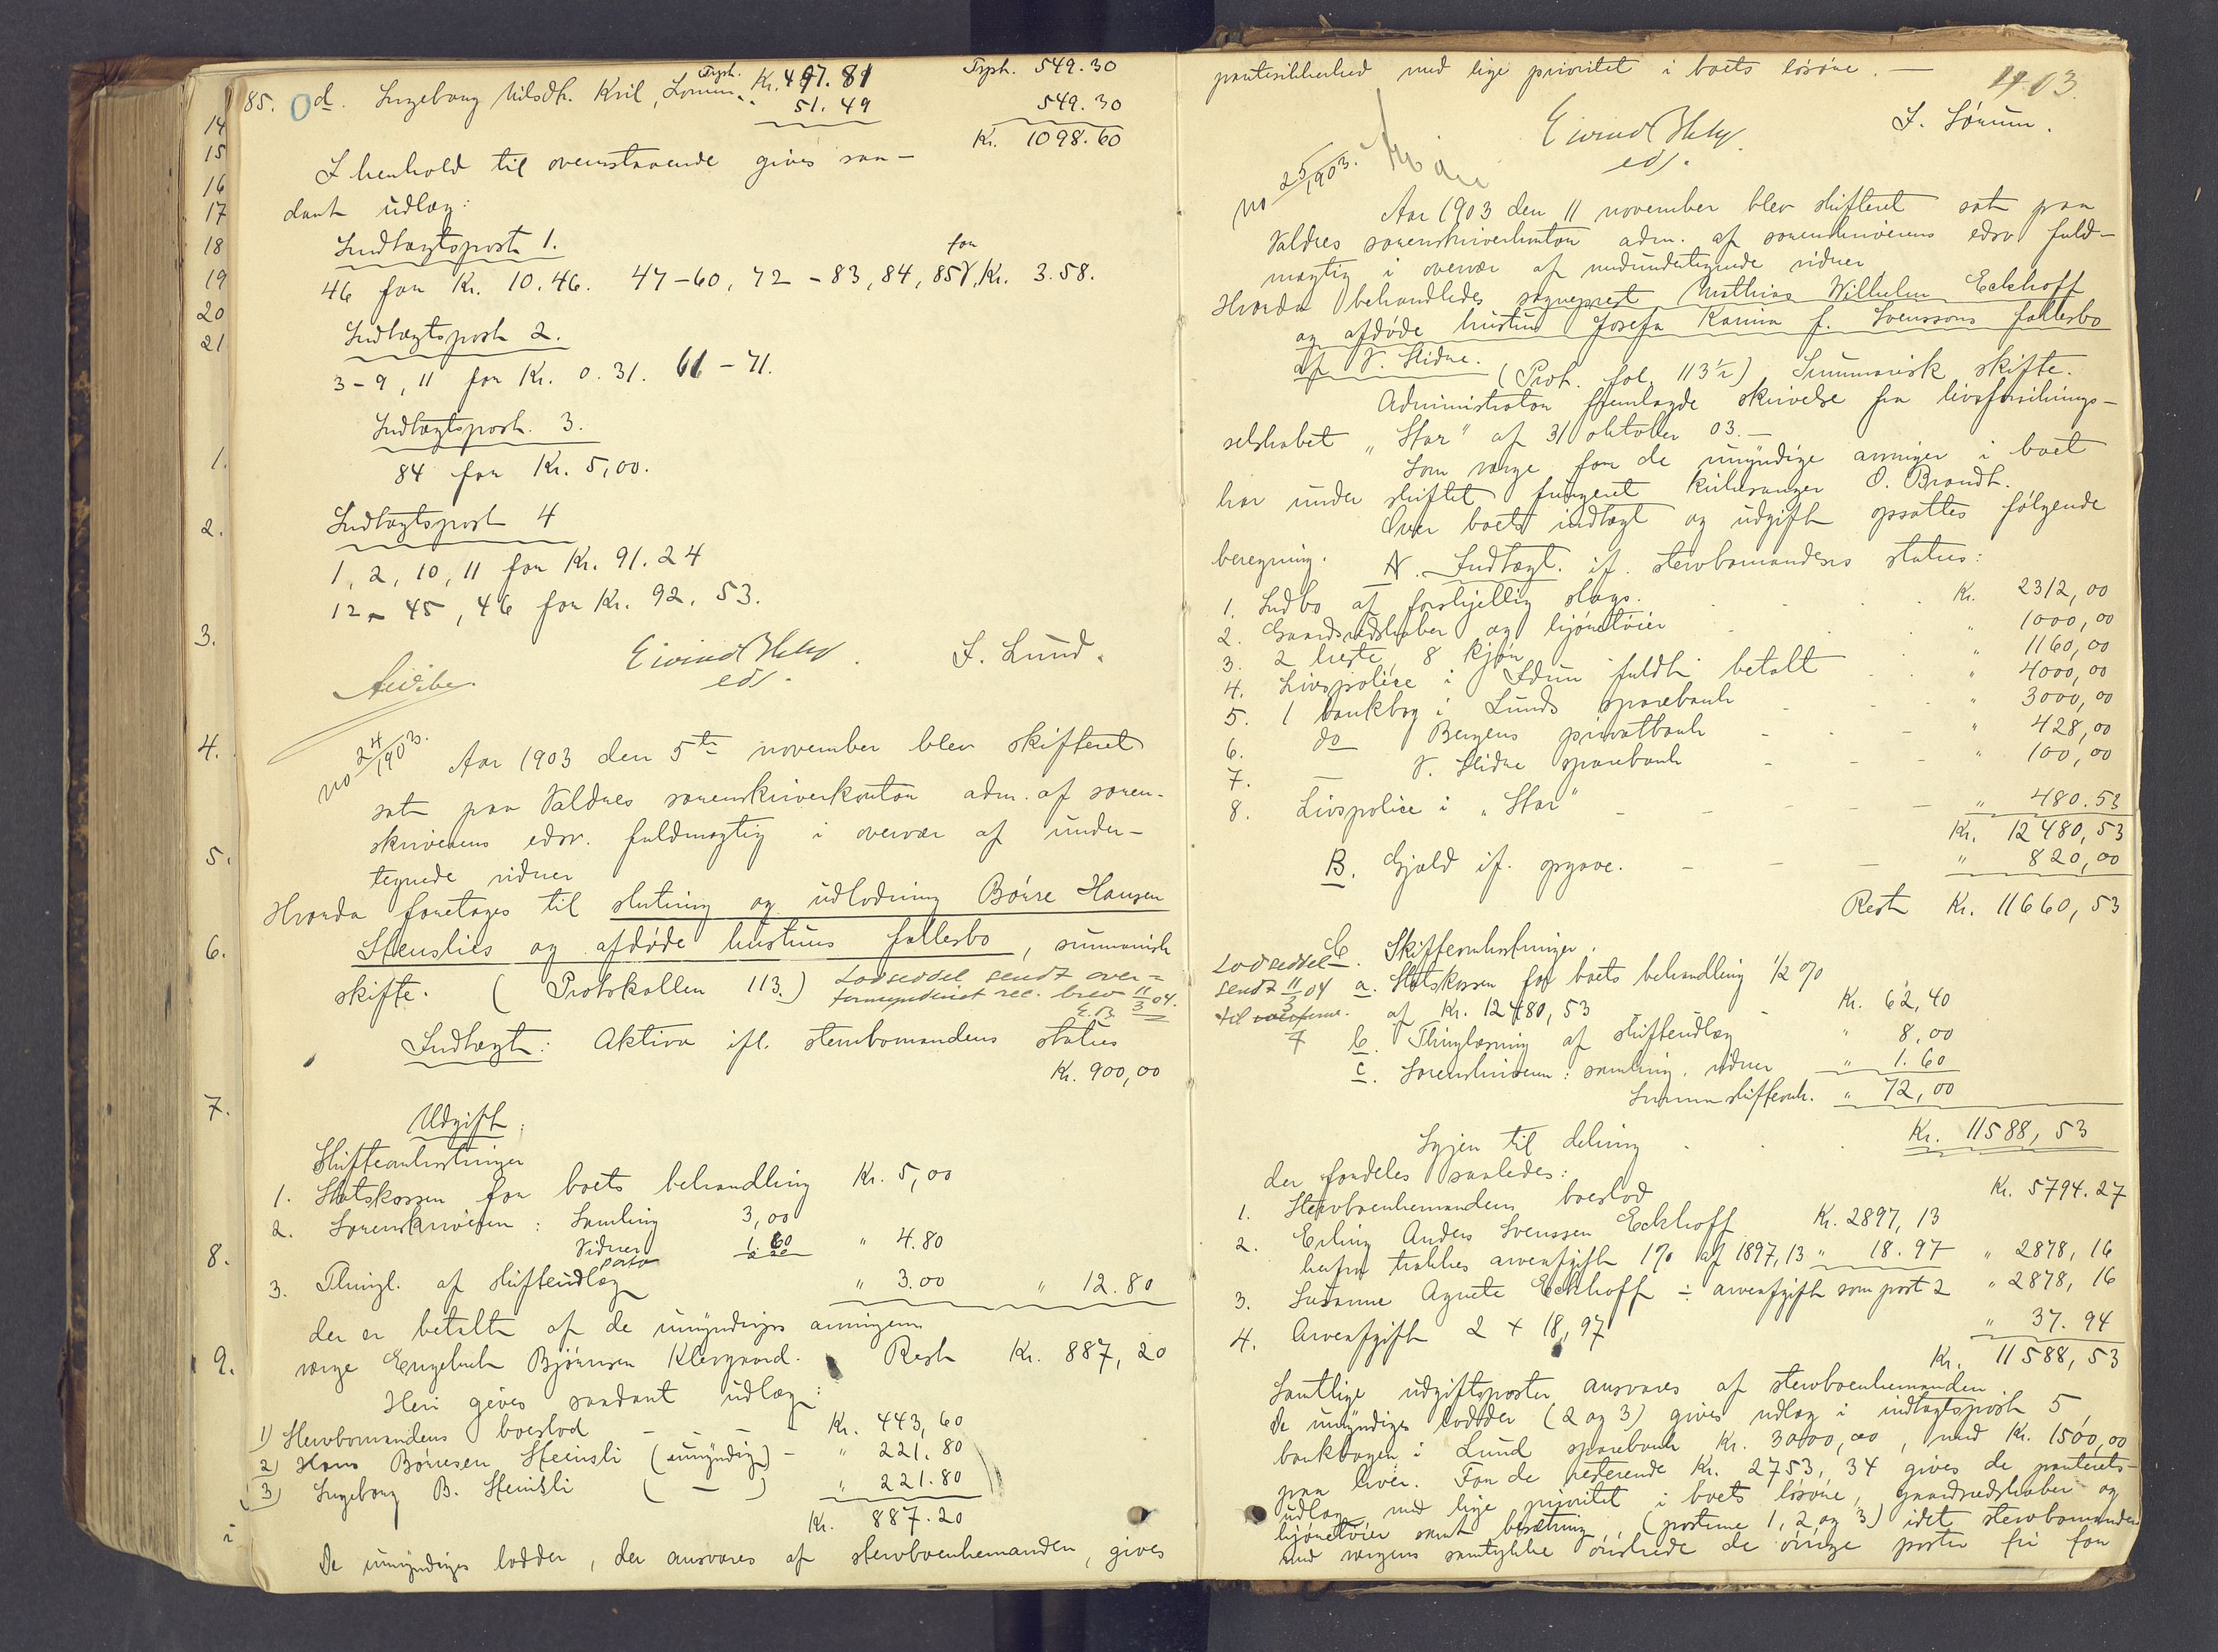 85. d. Ingeborg Nilsdt. Kvil, Lomen. Kr. 497.81 Trpt. 549.30
51.49 549.30
Kr. 1098.60
I henhold til ovenstaaende gives saa-
dant udlæg:
Indtægtspost 1.
46 for Kr. 10.46. 47-60, 72-83, 84, 85 for Kr. 3.58.
Indtægtspost 2.
3-9, 11 for Kr. 0.31. 61-71.
Indtægtspost 3.
84 for Kr. 5,00.
Indtægtspost 4
1, 2, 10, 11 for Kr. 91.24
12-45, 46 for Kr. 92.53.
Eivind
eds.
I. Lund.
No 24/1903.
Aar 1903 den 5te november blev skifteret
sat paa Valdres sorenskriverkontor adm. af soren-
skriverens edsv. fuldmægtig i overvær af under-
tegnede vidner
Hvorda foretages til slutning og udlodning Börre Hansen
Stenslies og afdøde hustrus fællesbo, summarisk
skifte. (Protokollen 113.) Lodseddel sendt over-
formynderiet rec. brev 11/3 04.
E.B
Indtægt: Aktiva ifl. stervbomandens status
Kr. 900,00
Udgift:
Skifteomkostninger
1. Statskassen for boets behandling Kr. 5,00
2. Sorenskriveren: Samling 3,00
Vidner 1.80 " 4.80
porto
3. Thingl. af skifteudlæg " 3.00 " 12.80
der er betalt af de umyndiges arvingers
værge Engebret Bjørnsen Klevgaard. Rest Kr. 887,20
Heri gives saadant udlæg:
1) Stervbomandens boeslod - - - Kr. 443,60
2) Hans Börresen Steinsli (umyndig) - " 221.80
3) Ingeborg B. Steinsli ( — ) " 221.80
Kr. 887.20
De umyndiges lodder, der ansvares af stervboenkemanden, gives
14
15
16
17
18
19
20
21
1.
2.
3.
4.
5.
6.
7.
8.
9.
pantesikkerhed med lige prioritet i boets løsøre. —
1903.
Eivind
eds.
I. Lörum.
No 25/1903.
Aar 1903 den 11 november blev skifteret sat paa
Valdres sorenskriverkontor adm. af sorenskriverens edsv. fuld-
mægtig i overvær af medundertegnede vidner
Hvorda behandledes sogneprest Mathias Wilhelm Eckhoff
og afdøde hustru Josefa Karina f. Svenssons fællesbo
af V. Slidre. (Prot. fol. 113½) Summarisk skifte.
Administrator fremlagde skrivelse fra livsforsikrings-
selskabet "Star" af 31 oktober 03.—
Som værge for de umyndige arvinger i boet
har under skiftet fungeret kirkesanger O. Brandt.
Over boets indtægt og udgift opsattes følgende
beregning. A. Indtægt. if. stervbomandens status:
1. Indbo af forskjellig slags. Kr. 2312,00
2. Gaardsredskaber og kjøretöier " 1000,00
3. 2 heste, 8 kjør " 1160,00
4. Livspolice i Idun fuldt betalt " 4000,00
5. 1 bankbog i Lunds sparebank " 3000,00
6. do Bergens privatbank " 428,00
7. — V. Slidre sparebank " 100,00
8. Livspolice i "Star" " 480.53
Kr. 12480,53
B. Gjæld if. opgave. " 820,00
Rest Kr. 11660,53
C. Skifteomkostninger.
Lodseddel
sendt 11/3 04
til
a. Statskassen for boets behandling ½ %
af Kr. 12480,53 Kr. 62,40
b. Thinglæsning af skifteudlæg " 8,00
c. Sorenskriveren: samling. vidner " 1.60
Summa skifteomk. " 72,00
Igjen til deling Kr. 11588,53
der fordeles saaledes:
1. Stervboenkemandens boeslod Kr. 5794.27
2. Erling Anders Svenssen Eckhoff Kr. 2897,13
herfra trækkes arveafgift 1% af 1897,13 " 18.97 " 2878,16
3. Susanne Agnete Eckhoff ÷ arveafgift som post 2 " 2878,16
4. Arveafgift 2 × 18,97 " 37.94
Kr. 11588,53
Samtlige udgiftsposter ansvares af stervboenkemanden
De umyndiges lodder (2 og 3) gives udlæg i indtægtspost 5,
bankbogen i Lund sparebank Kr. 3000,00, med Kr. 1500,00
paa hver. For de resterende Kr. 2753,34 gives de panterets-
udlæg med lige prioritet i boets løsøre, gaardsredskaber og
kjøretöier samt besætning, (posterne 1, 2 og 3) idet stervbomanden
med værgens samtykke ønskede de övrige poster fri for